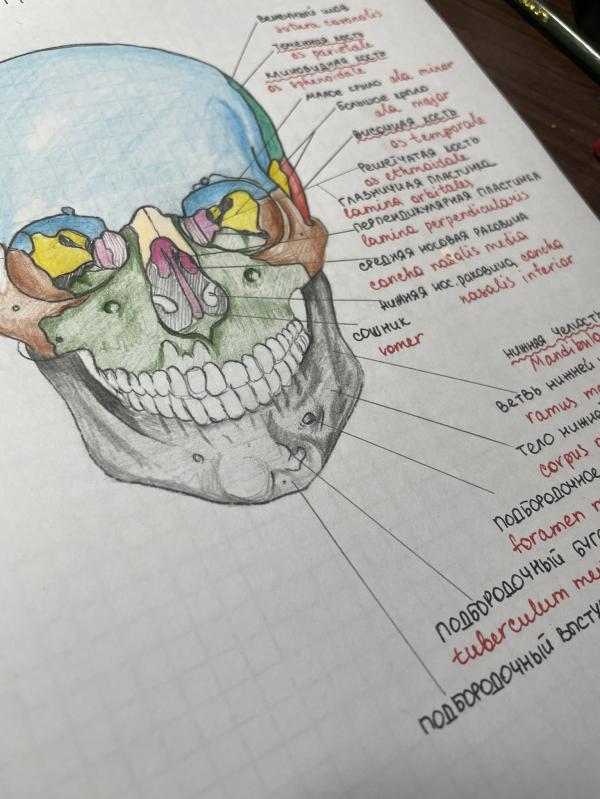 ВЕНЕЧНЫЙ ШОВ
sutura coronalis
ТЕМЕННАЯ КОСТЬ
os parietale
КЛИНОВИДНАЯ КОСТЬ
os sphenoidale
МАЛОЕ КРЫЛО ala minor
БОЛЬШОЕ КРЫЛО
ala major
ВИСОЧНАЯ КОСТЬ
os temporale
РЕШЕТЧАТАЯ КОСТЬ
os ethmoidale
ГЛАЗНИЧНАЯ ПЛАСТИНКА
lamina orbitales
ПЕРПЕНДИКУЛЯРНАЯ ПЛАСТИНКА
lamina perpendicularis
СРЕДНЯЯ НОСОВАЯ РАКОВИНА
concha nasalis media
НИЖНЯЯ НОС. РАКОВИНА concha
nasalis interior
СОШНИК
vomer
НИЖНЯЯ ЧЕЛЮСТЬ
Mandibula
ВЕТВЬ НИЖНЕЙ
ramus
ТЕЛО НИЖНЕ
corpus
ПОДБОРОДОЧНОЕ
foramen
ПОДБОРОДОЧНЫЙ БУГО
tuberculum me
ПОДБОРОДОЧНЫЙ ВЫСТУ